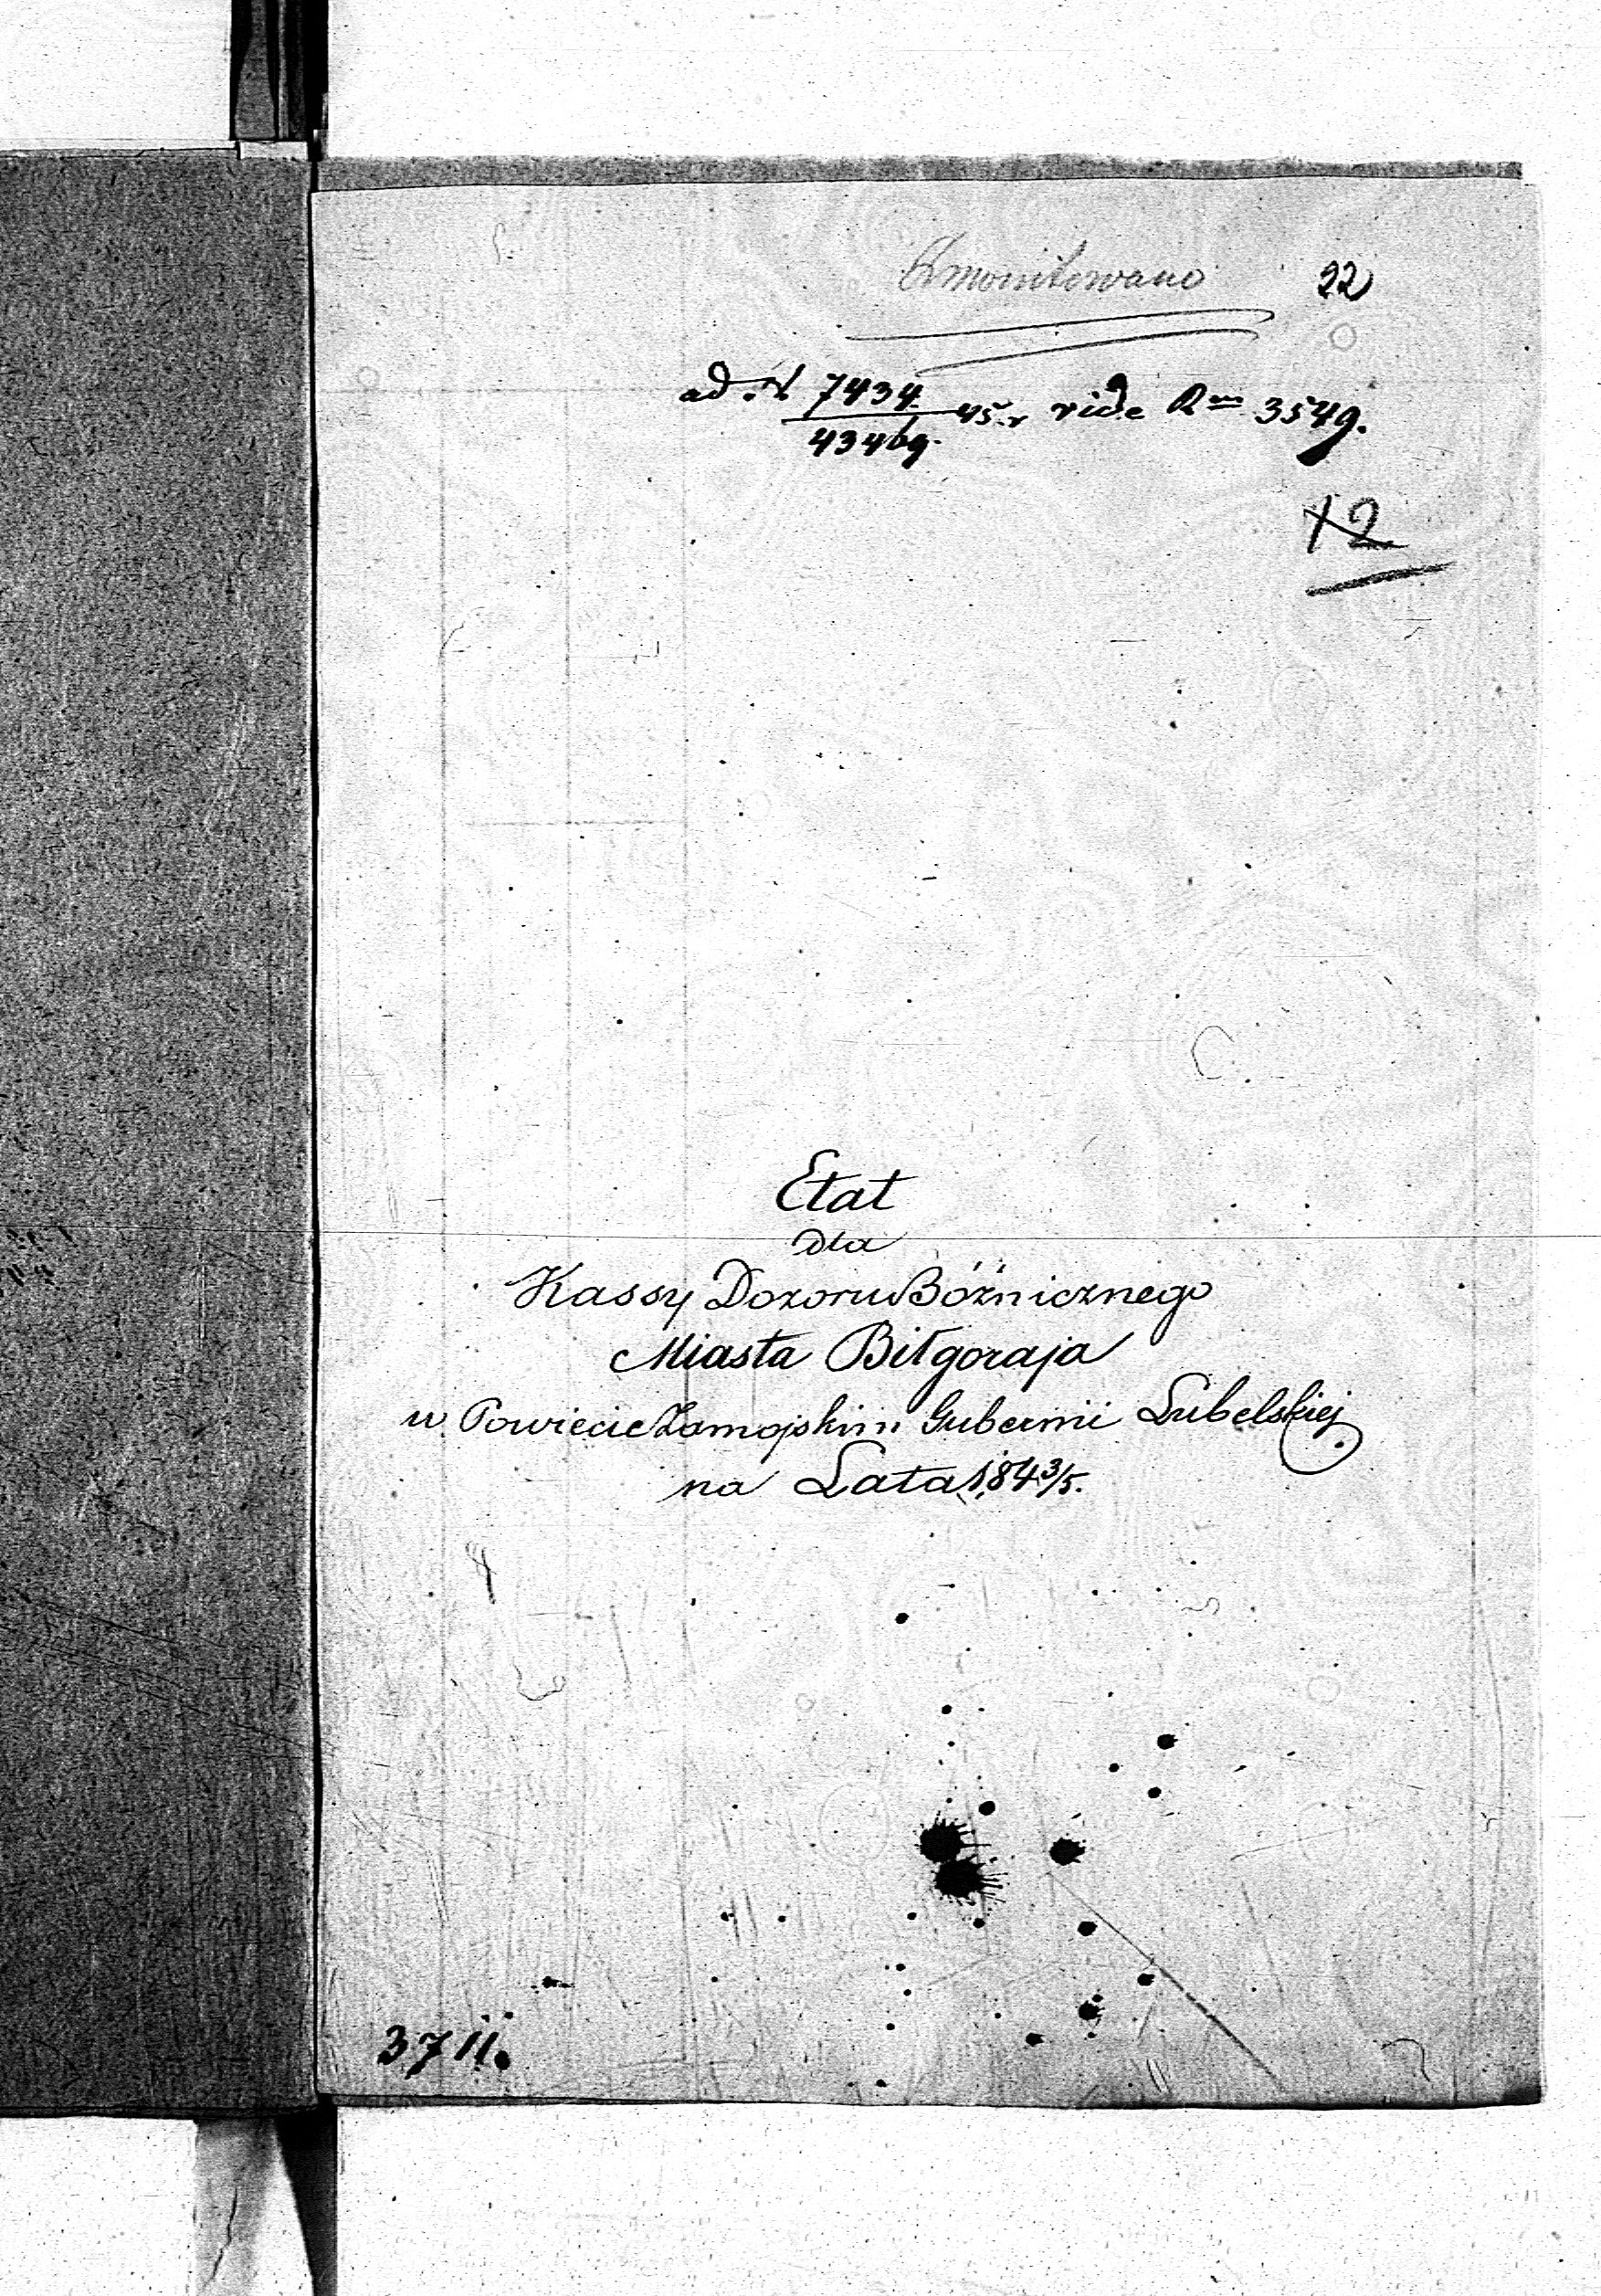 22
ad N 7434/43469 45 r vide Rm 3549.
12
Etat
dla
Kassy Dozoru Bóżnicznego
Miasta Biłgoraja
w Powiecie Zamojskim Gubernii Lubelskiej
na Lata 1843/5.
3711.